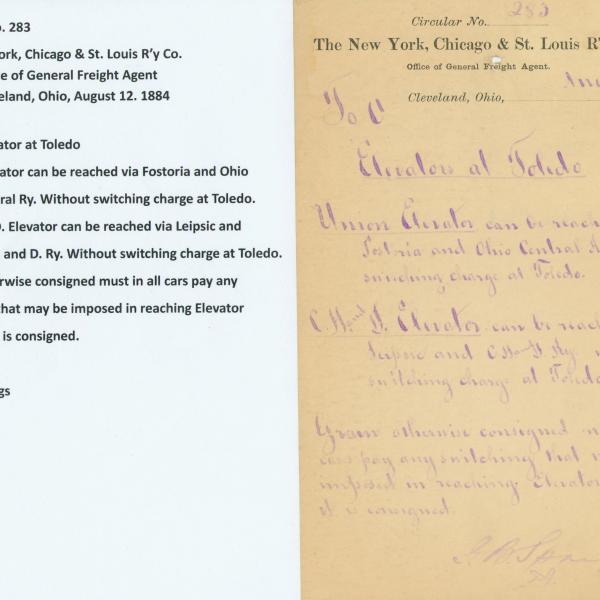 o. 283
ork, Chicago & St. Louis R'y Co.
e of General Freight Agent
eland, Ohio, August 12. 1884
ator at Toledo
ator can be reached via Fostoria and Ohio
ral Ry. Without switching charge at Toledo.
D. Elevator can be reached via Leipsic and
and D. Ry. Without switching charge at Toledo.
rwise consigned must in all cars pay any
that may be imposed in reaching Elevator
is consigned.
gs
Circular No. 283
The New York, Chicago & St. Louis R'
Office of General Freight Agent.
Cleveland, Ohio,
To
Elevators at Toledo
Union Elevator can be reac
Fostoria and Ohio Central R
switching charge at Toledo.
C. H and D. Elevator can be reac
Leipsic and C H and D Ry.
switching charge at Toledo
Grain otherwise consigned
cars pay any switching that
imposed in reaching Elevator
it is consigned.